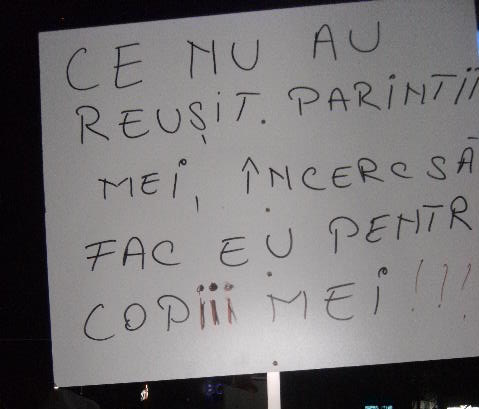 CE NU AU
REUȘiT. PARiNTii
MEi, ÎNCERC SĂ
FAC EU PENTR
COPiii MEi!!!